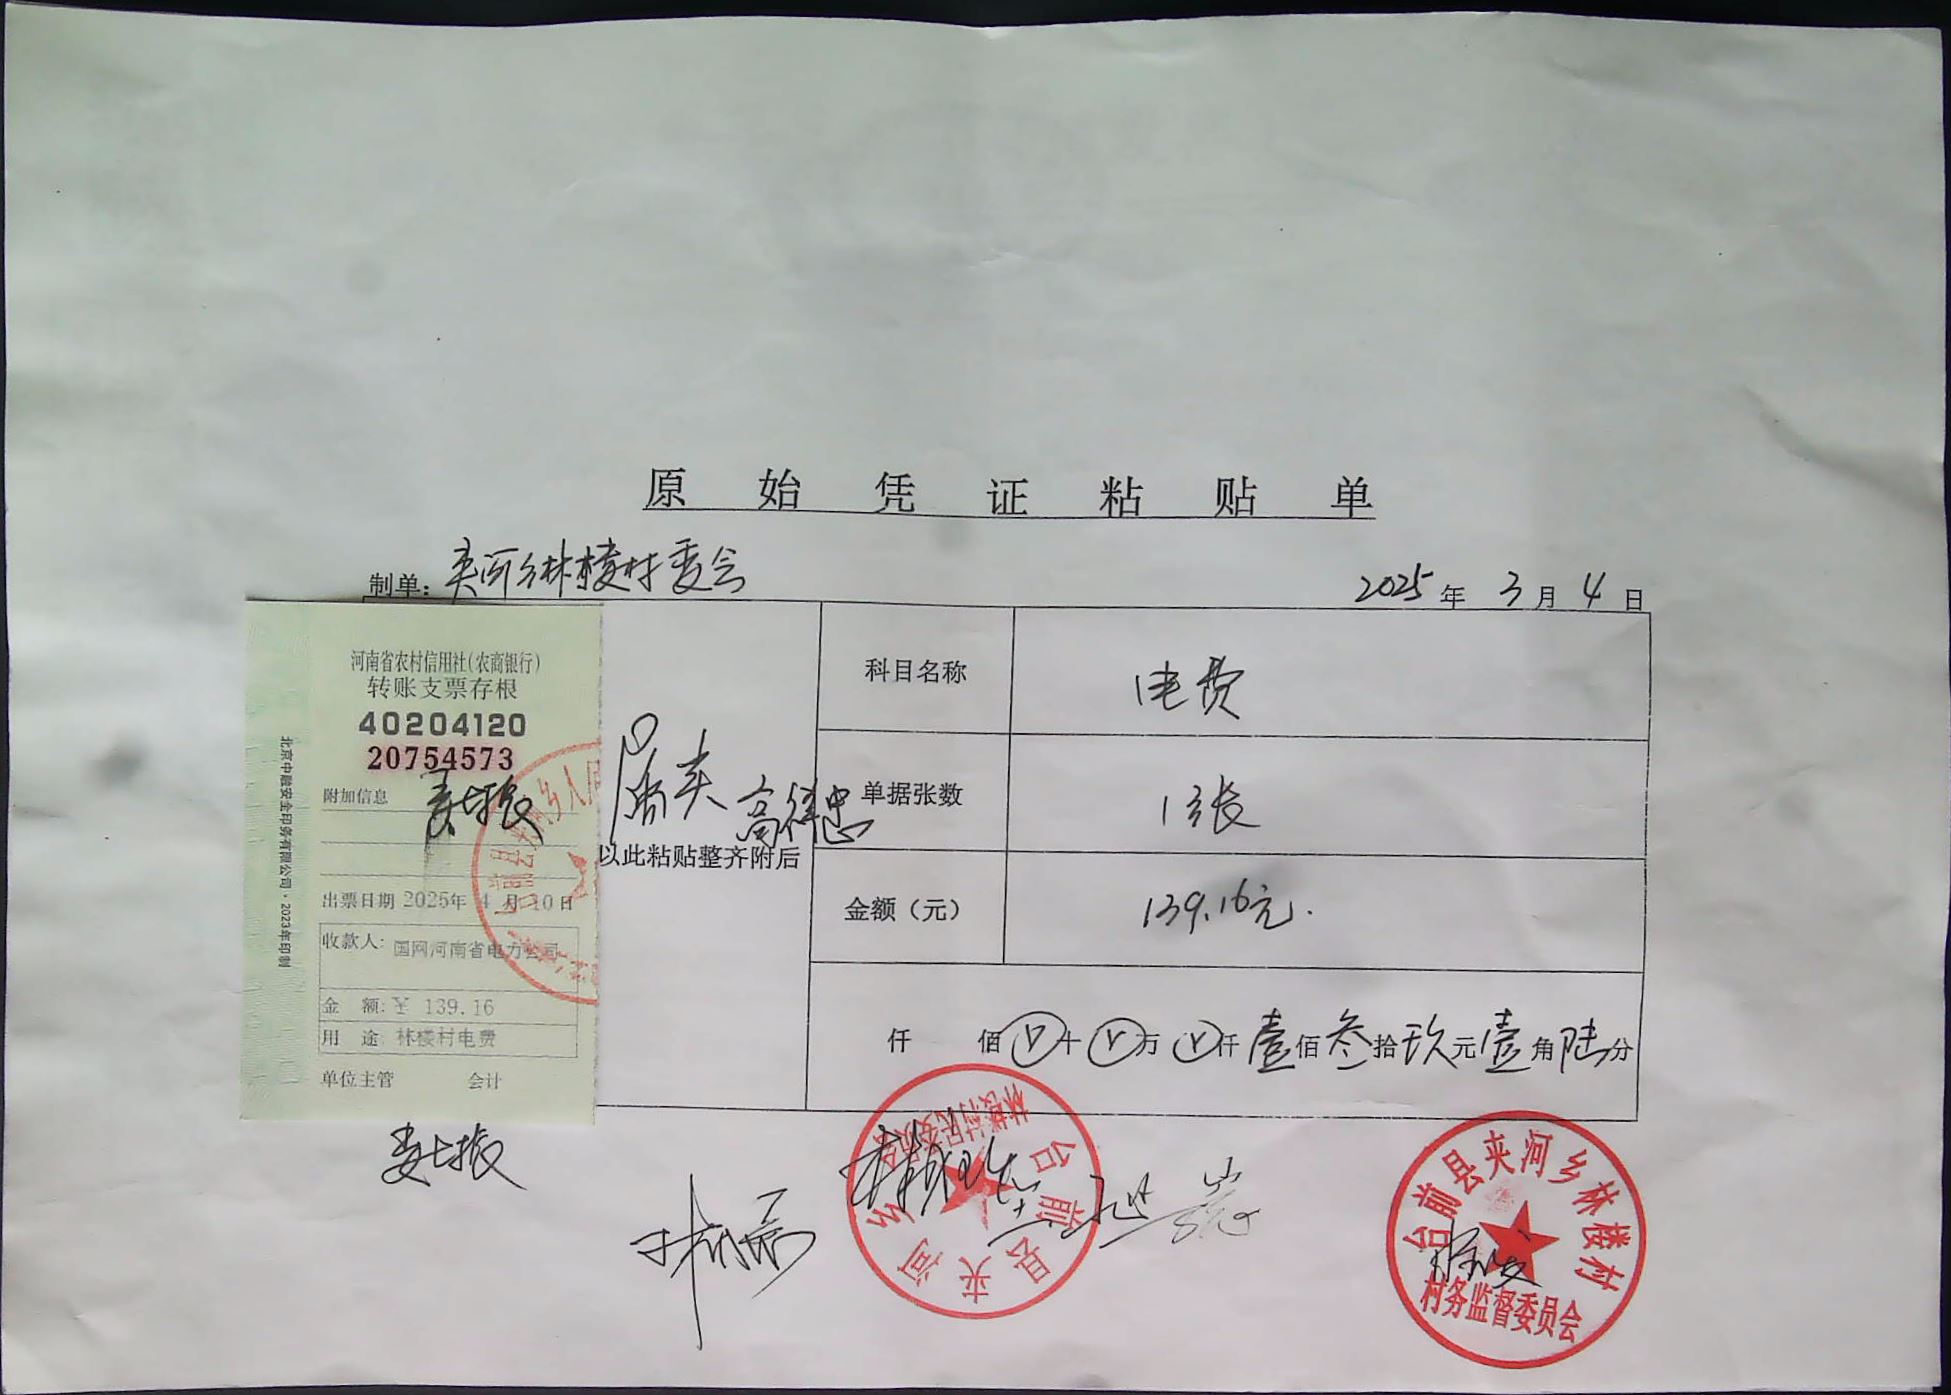 原始凭证粘贴单
制单：夹河乡林楼村委会
2025年3月4日
河南省农村信用社(农商银行)
转账支票存根
40204120
20754573
附加信息
出票日期 2025年 4月10日
收款人: 国网河南省电力公司
金 额: ¥ 139.16
用 途: 林楼村电费
单位主管 会计
北京中融安全印务有限公司·2023年印制
以此粘贴整齐附后
科目名称 电费
单据张数 1张
金额（元） 139.16元.
仟 佰 十 万 仟 壹佰叁拾玖元壹角陆分
台前县夹河乡
林楼村民委员会
台前县夹河乡林楼村
村务监督委员会